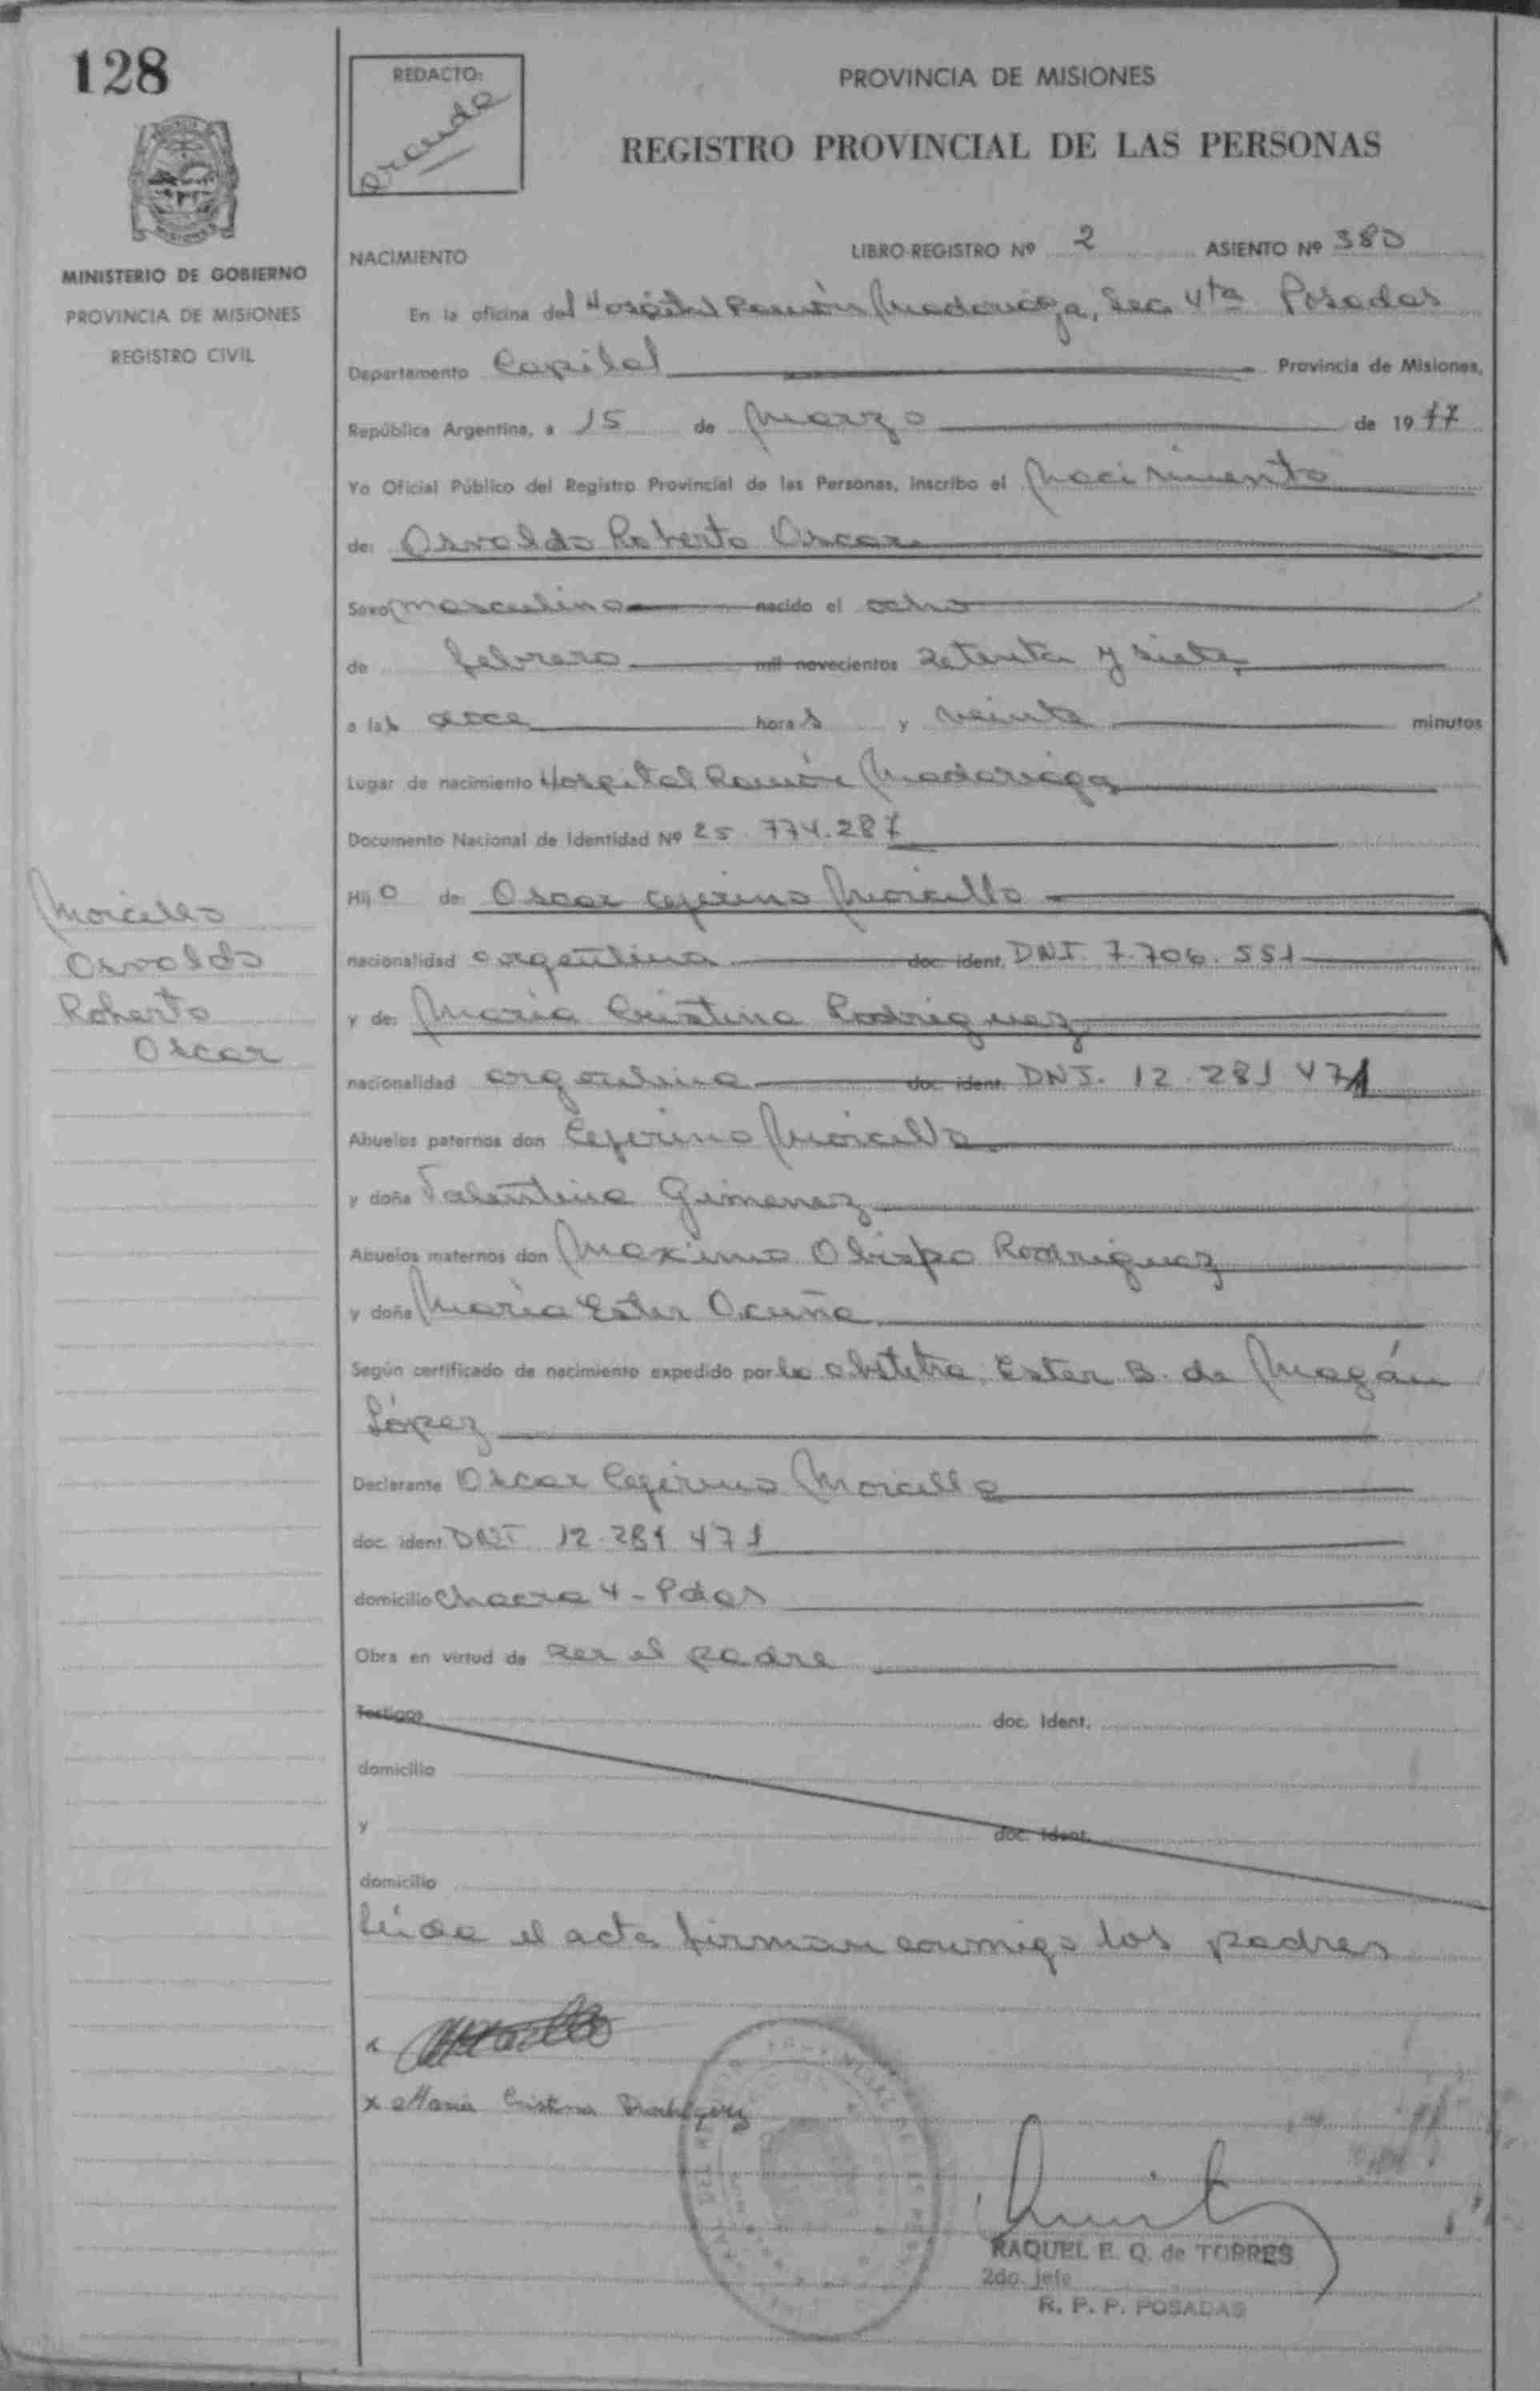 128
REDACTO:
PROVINCIA DE MISIONES
REGISTRO PROVINCIAL DE LAS PERSONAS
MINISTERIO DE GOBIERNO
PROVINCIA DE MISIONES
REGISTRO CIVIL
NACIMIENTO LIBRO-REGISTRO Nº 2 ASIENTO Nº 380
En la oficina del Hospital Ramón Madariaga, Sec 4ta Posadas
Departamento Capital Provincia de Misiones,
República Argentina, a 15 de Marzo de 1977
Yo Oficial Público del Registro Provincial de las Personas, inscribo el Nacimiento
de: Osvaldo Roberto Oscar
Sexo masculino nacido el ocho
de febrero mil novecientos setenta y siete
a las doce horas y veinte minutos
Lugar de nacimiento Hospital Ramón Madariaga
Documento Nacional de Identidad Nº 25.774.287
Hijo de: Oscar Ceferino Morcillo
nacionalidad argentina doc. ident. DNI. 7.706.551
y de: María Cristina Rodriguez
nacionalidad argentina doc. ident. DNI. 12.281 471
Abuelos paternos don Ceferino Morcillo
y doña Valentina Gimenez
Abuelos maternos don Maximo Obispo Rodriguez
y doña María Ester Ocuña
Según certificado de nacimiento expedido por la obstetra. Ester B. de Magán
López
Declarante Oscar Ceferino Morcillo
doc. ident DNI 12.281 471
domicilio Chacra 4 - Pdas
Obra en virtud de ser el padre
Testigos doc. Ident.
domicilio
y doc. Ident.
domicilio
Leída el acta firman conmigo los padres
x
x María Cristina Rodriguez
RAQUEL E. Q. de TORRES
2do. jefe
R. P. P. POSADAS
Morcillo
Osvaldo
Roberto
Oscar